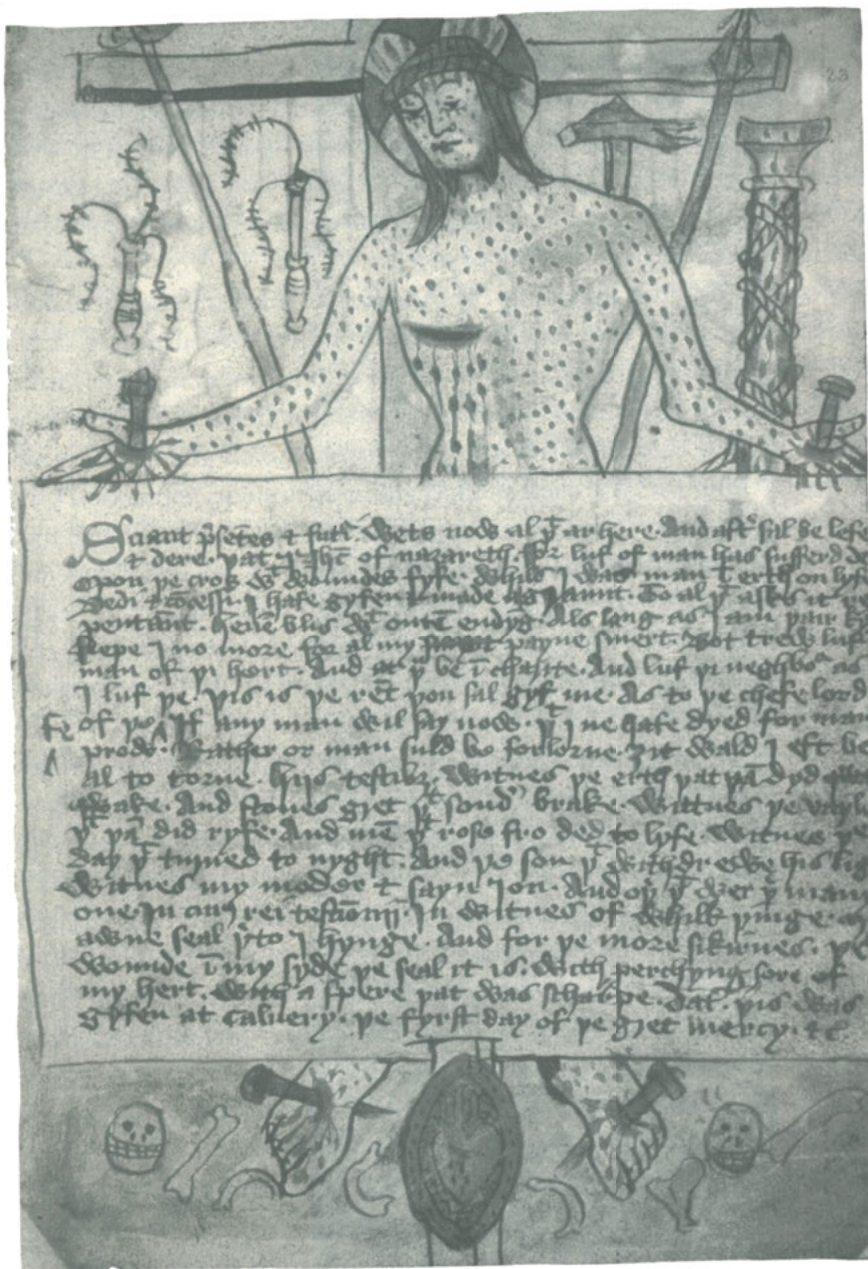 23
Sciant p̄sētes & futī. Wets now al þ̄ ar here. And aftʼ sal be lef
& dere. þat I ihc̄ of nazareth. for luf of man has sufferd d
opon þe cros wᵗ woundes fyfe. Whils I was man ī erth on ly
Dedi & cōcessi. I hafe gyfen & made a graunt. To al þ̄ askes it
pentant. heuē blis wᵗ outē endyg̅. Als lang as I am þair
kepe I no more for al my payne smert. Bot trew luf
man of þi hert. And at þ̄ be ī charite. And luf þi neghboʳ as
I luf þe. þis is þe rēt þou sal gyf me. As to þe chefe lord
fe of If any man wil say now. þᵗ I ne hafe dyed for man
prow. Rather or man suld be forlorne. ȝit wald I eft be
al to torne. hijs testibȝ. Witnes þe erth þat þā dyd
qwake. And stones gret þᵗ sondʼ brake. Witnes þe vayl
þᵗ þā did ryfe. And mē þᵗ rose fro ded to lyfe. Witnes þe
day þᵗ turned to nyght. And þe son þᵗ withdrewe his li
Witnes my moder & sayn Ion. And oþʼ þᵗ wer þʼ many
one. In cuiʒ rei testīonij. In witnes of whilk þinge.
awne seal þʼto I hynge. And for þe more sikirnes. þe
wounde ī my syde þe seal it is. With perchyng sore of
my hert. With a spere þat was scharpe. Dat. þis was
gyfen at caluery. þe fyrst day of þe gret mercy. &c